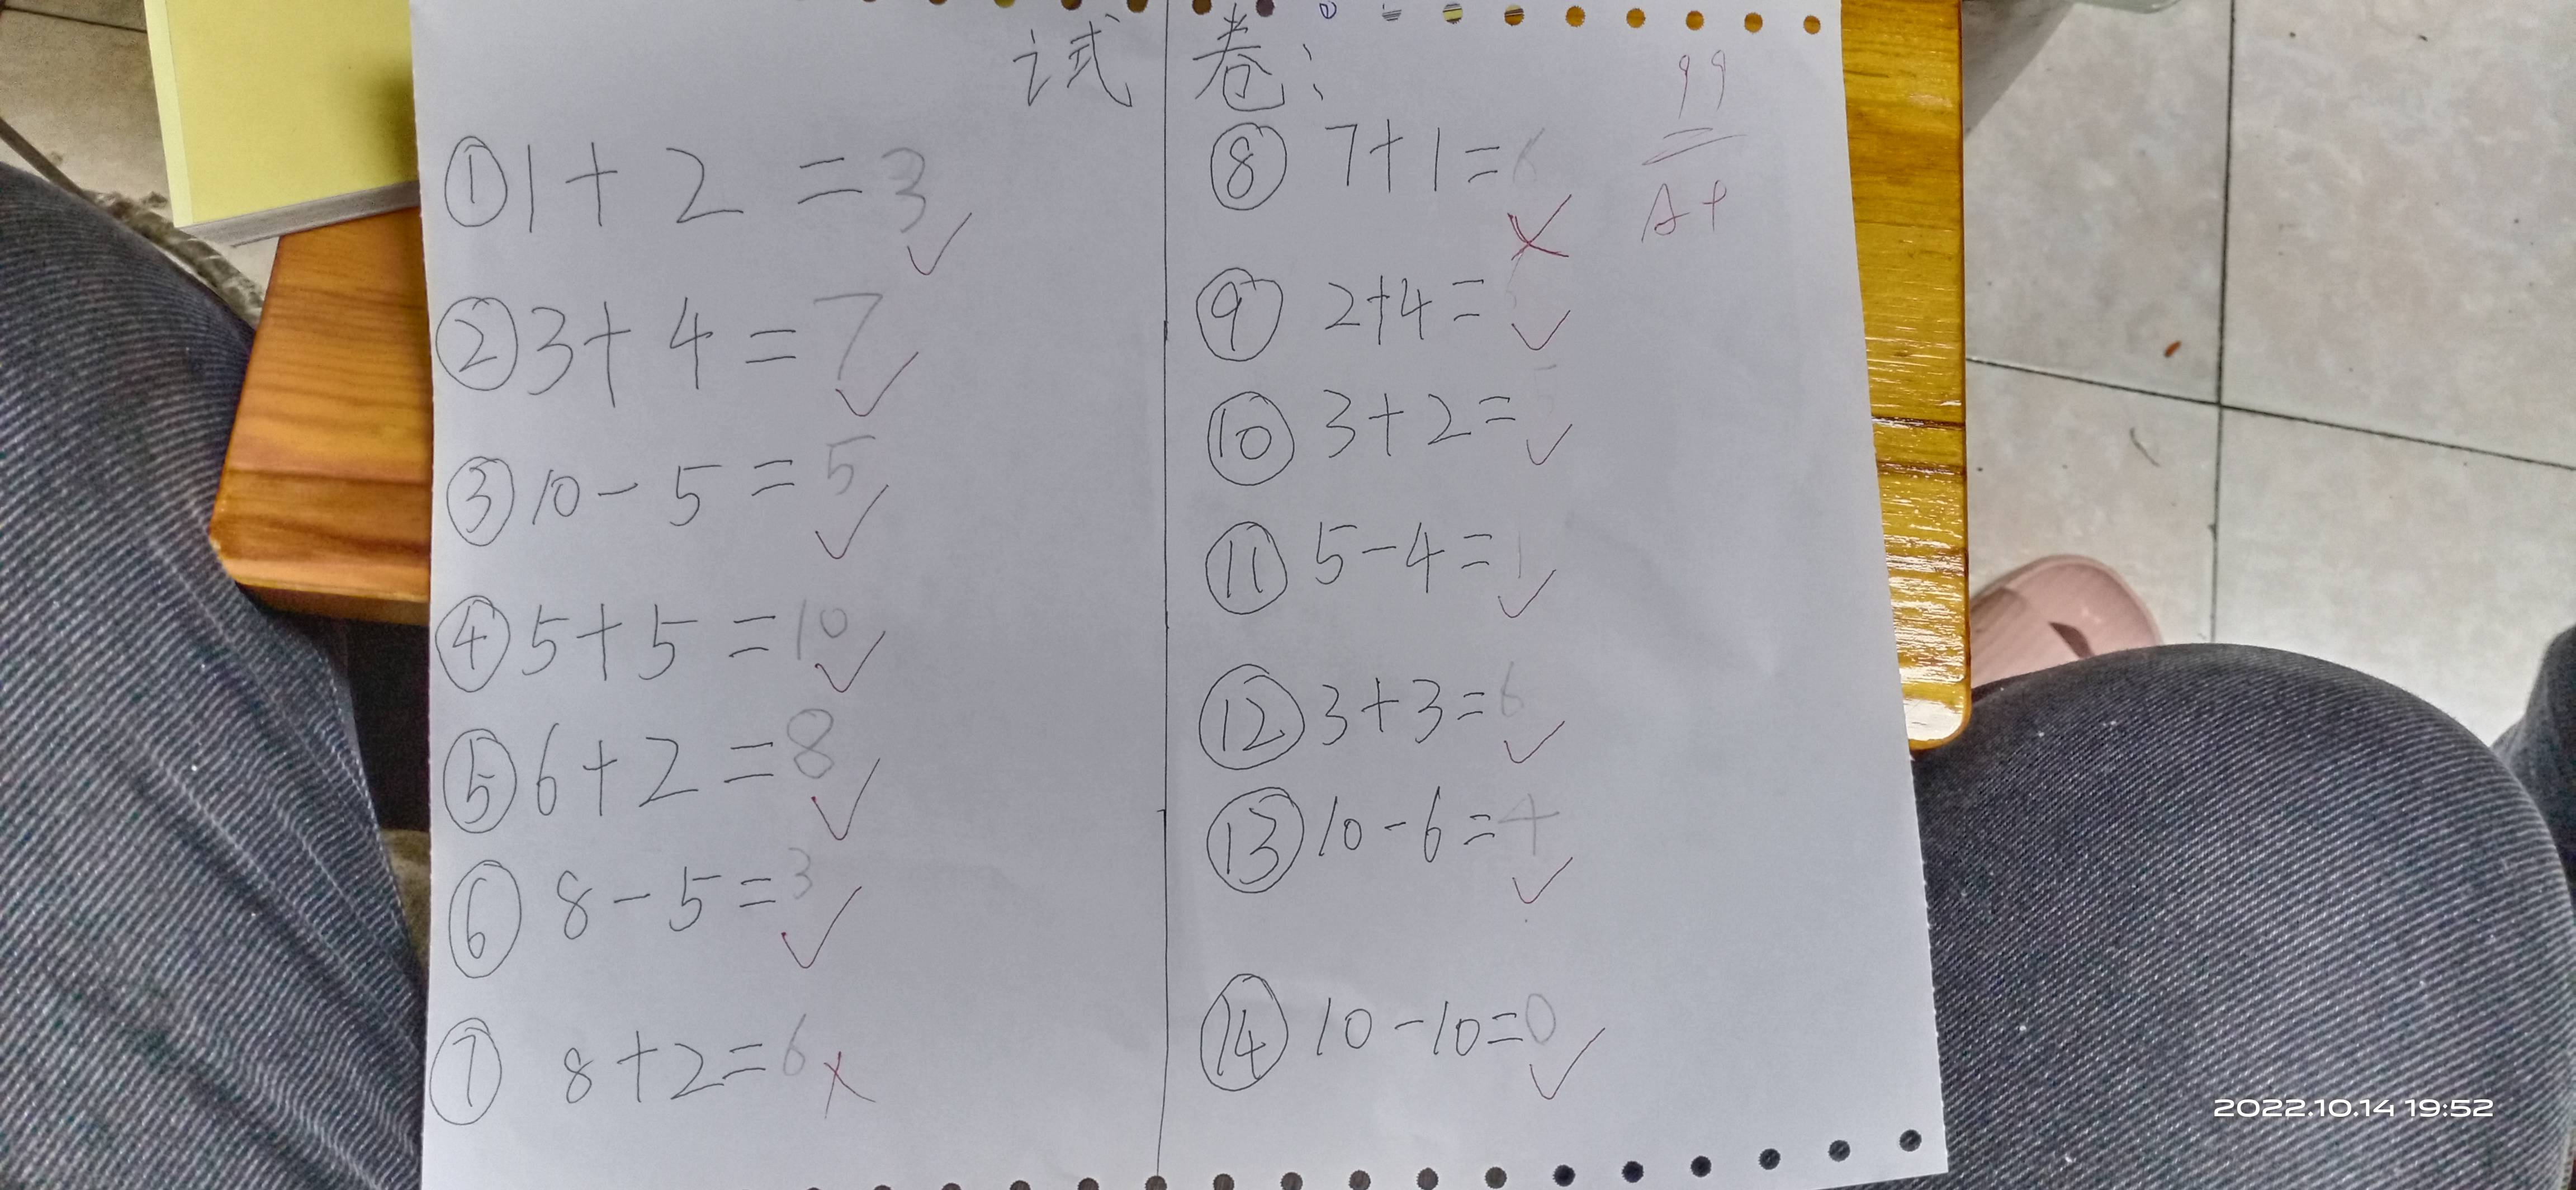 试卷:
99
A+
① 1+2=3
② 3+4=7
③ 10-5=5
④ 5+5=10
⑤ 6+2=8
⑥ 8-5=3
⑦ 8+2=6
⑧ 7+1=6
⑨ 2+4=
⑩ 3+2=
⑪ 5-4=1
⑫ 3+3=6
⑬ 10-6=4
⑭ 10-10=0
2022.10.14 19:52